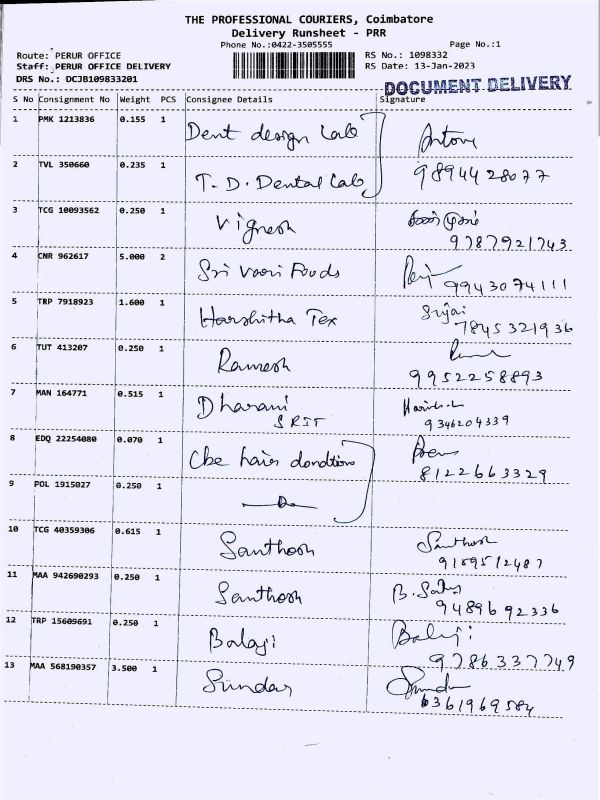 THE PROFESSIONAL COURIERS, Coimbatore
Delivery Runsheet - PRR
Phone No.:0422-3505555 Page No.:1
Route: PERUR OFFICE RS No.: 1098332
Staff: PERUR OFFICE DELIVERY RS Date: 13-Jan-2023
DRS No.: DCJB109833201
DOCUMENT DELIVERY
S No Consignment No Weight PCS Consignee Details Signature
1 PMK 1213836 0.155 1 Dent design Lab Antony
2 TVL 350660 0.235 1 T. D. Dental Lab 9894428077
3 TCG 10093562 0.250 1 Vignesh
9787921743
4 CNR 962617 5.000 2 Sri Vaari Foods 9943074111
5 TRP 7918923 1.600 1 Harshitha Tex Srijai
7845321936
6 TUT 413207 0.250 1 Ramesh
9952258893
7 MAN 164771 0.515 1 Dharani
SRIT 9346204339
8 EDQ 22254080 0.070 1 Cbe hair donditions
8122663329
9 POL 1915027 0.250 1
10 TCG 40359306 0.615 1 Santhosh Santhosh
9159512487
11 MAA 942690293 0.250 1 Santhosh B. Sathy
9489692336
12 TRP 15609691 0.250 1 Balaji Balaji
9786337749
13 MAA 568190357 3.500 1 Sundar
6361969584